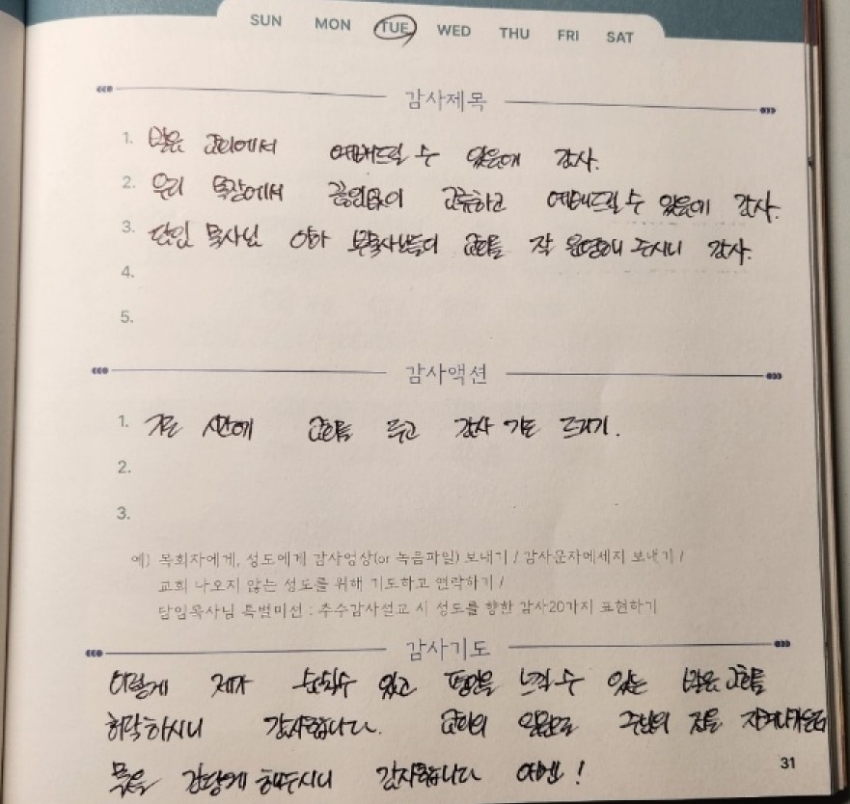 SUN MON TUE WED THU FRI SAT
감사제목
1. 밝은 교회에서 예배드릴 수 있음에 감사.
2. 우리 목장에서 끊임없이 교류하고 예배드릴 수 있음에 감사.
3. 담임 목사님 이하 부목사님들이 교회를 잘 운영해 주시니 감사.
4.
5.
감사액션
1. 기도 시간에 교회를 두고 감사 기도 드리기.
2.
3.
예) 목회자에게, 성도에게 감사영상(or 녹음파일) 보내기 / 감사문자메세지 보내기 /
교회 나오지 않는 성도를 위해 기도하고 연락하기 /
담임목사님 특별미션 : 추수감사설교 시 성도를 향한 감사20가지 표현하기
감사기도
이렇게 제가 쉴 수 있고 평안을 느낄 수 있는 밝은 교회를
허락하시니 감사합니다. 교회의 일원으로 주님의 전을
몫을 감당케 해주시니 감사합니다 아멘!
31